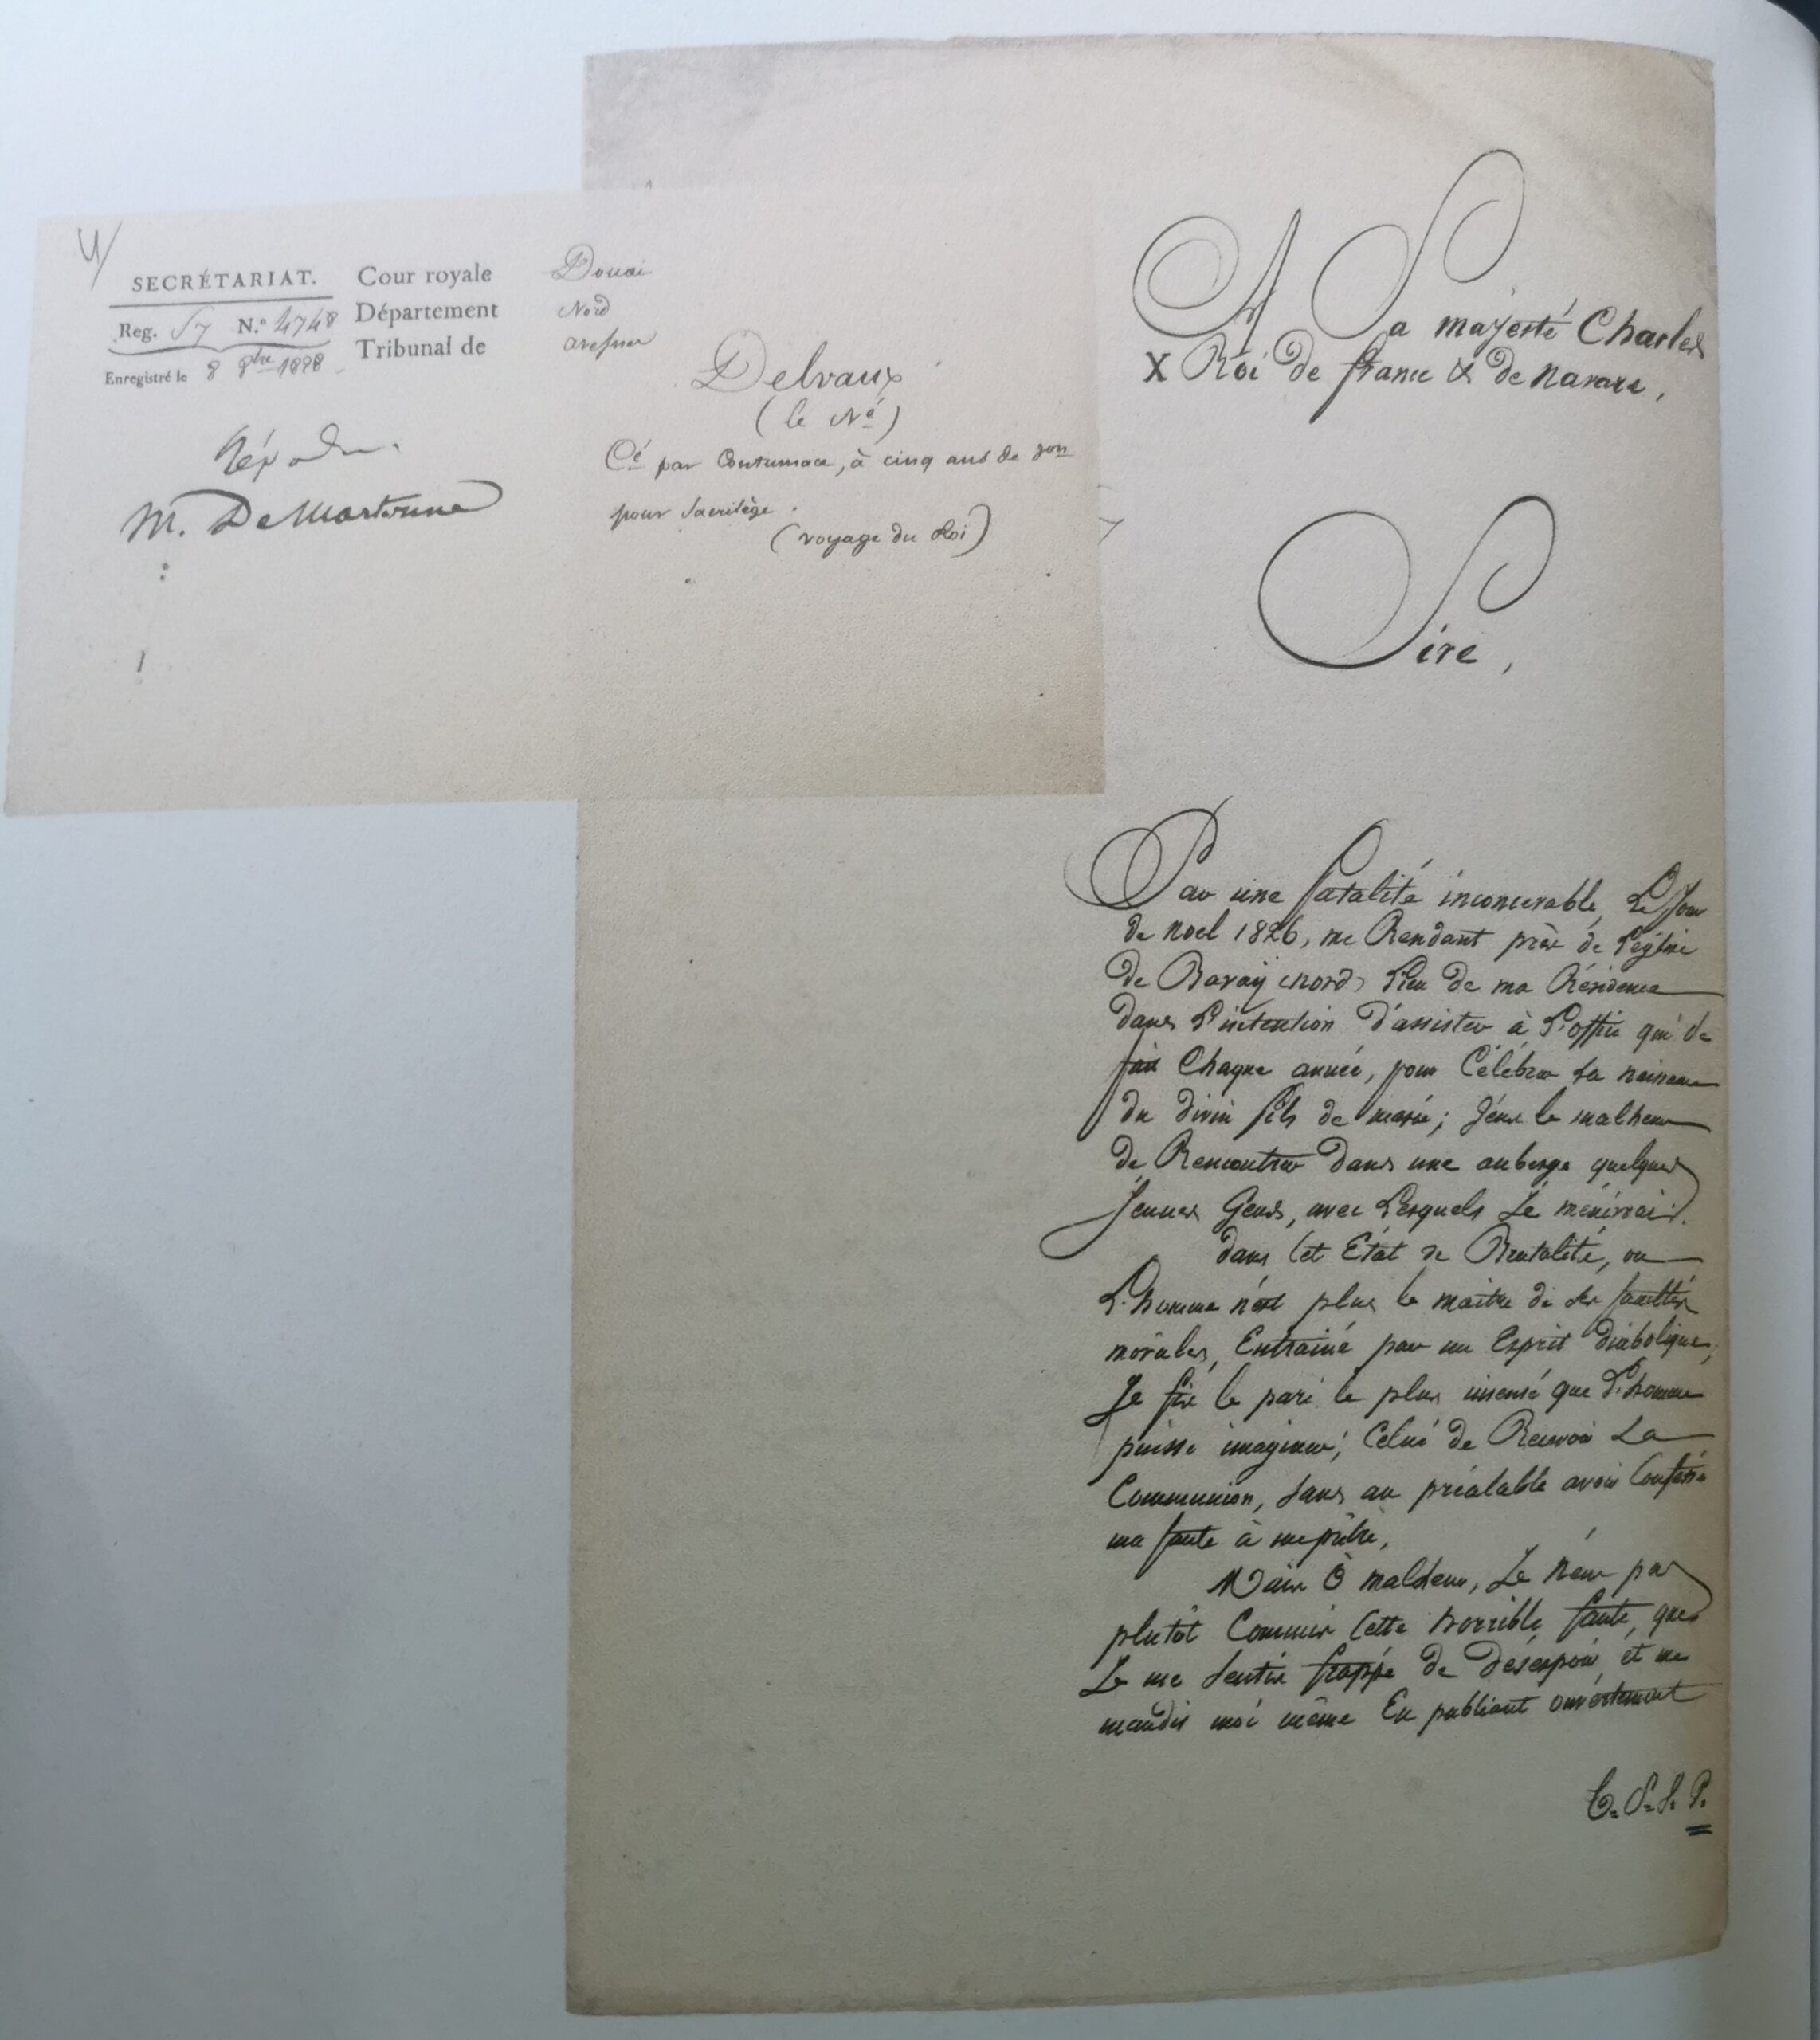 4/
SECRÉTARIAT. Cour royale Douai
Reg. S7 N.º 4748 Département Nord
Tribunal de avesnes
Enregistré le 8 8bre 1828
Delvaux
(le Né)
Cé par Contumace, à cinq ans de son
pour Sacrilège.
(voyage du Roi)
M. DeMartonne
A Sa majesté Charles
X Roi de france & de navare,
Sire,
Par une fatalité inconcevable, Le Jour
de noel 1826, me Rendant près de L'église
de Bavaÿ (nord) Lieu de ma Résidence
dans L'intention d'assister à L'office qui se
fait Chaque année, pour Célébrer La naissance
du divin fils de marie; J'éus le malheur
de Rencontrer dans une auberge quelques
Jeunes Gens, avec Lesquels Je m'énivrai.
dans Cet Etat de Brutalité, ou
L'homme n'est plus le maitre de ses facultés
morales, Entrainé par un Esprit diabolique,
Je fis le pari le plus insensé que L'homme
puisse imaginer; Celui de Recevoir La
Communion, sans au préalable avoir Confessé
ma faute à un prêtre,
Mais Ô malheur, Je n'eus pas
plutôt Commis Cette horrible faute, que
Je me sentis frappé de désespoir, et me
maudis moi même En publiant ouvertement
T. S. S. P.